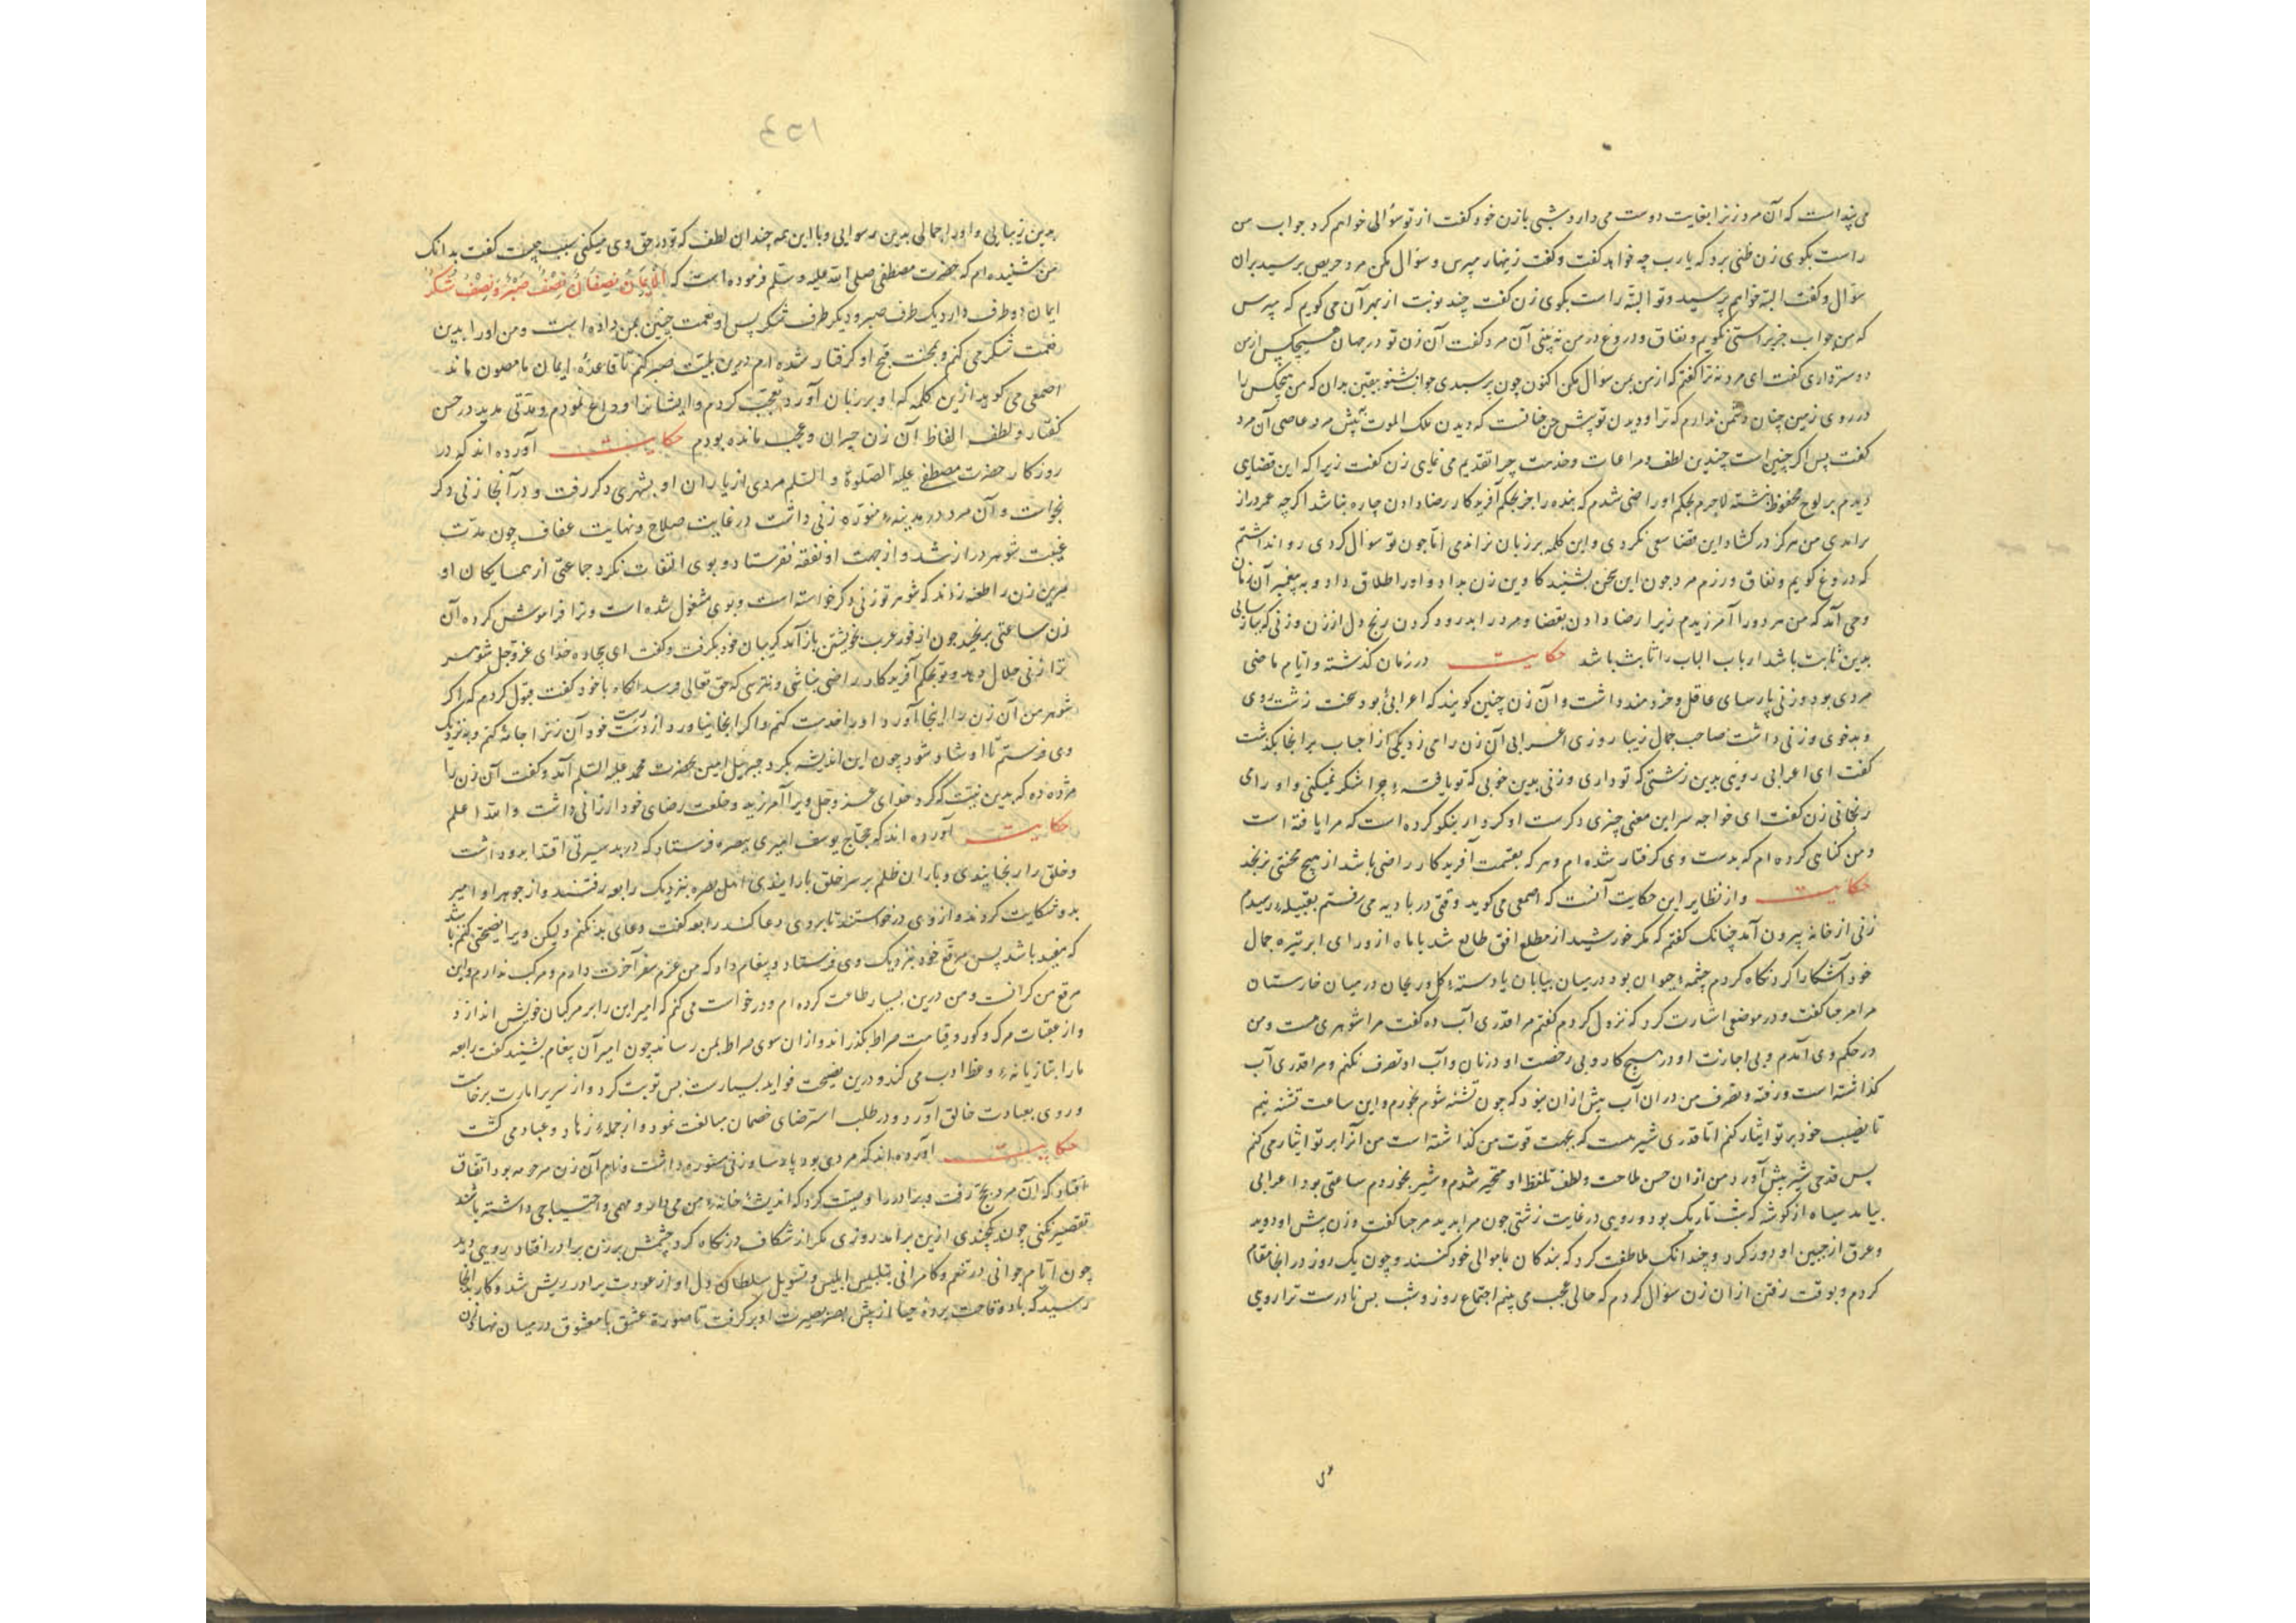 می پنداست که آن مرد زنرا بغایت دوست می دارد شبی بازن خود کفت از تو سؤالی خواهم کرد جواب من
راست بکوی زن ظنی برد که یا رب چه خواهد کفت وکفت زینهار مپرس و سؤال مکن مرد حریص بر سید بران
سؤال وکفت البته خواهم پرسید وتو البتّه راست بکوی زن کفت چند نوبت از بهر آن می کویم که مپرس
که من جواب جز براستی نکویم و نفاق ودروغ در من نه بینی آن مرد کفت آن زن تو در جهان هیچکس از من
دوستر داری کفت ای مرد نه ترا کفتم که از من بمن سؤال مکن اکنون چون پرسیدی جواب بشنو بیقین بدان که من هیچکس را
در روی زمین چنان دشمن ندارم که ترا و دیدن تو پیش من چنانست که دیدن ملک الموت پیش مرد عاصی آن مرد
کفت پس اکر چنین است چندین لطف ومراعات وخدمت چرا تقدیم می نمای زن کفت زیرا که این قضای
دیدم بر لوح محفوظ نبشته لاجرم بحکم او راضی شدم که بنده را جز بحکم آفریدکار رضا دادن چاره نباشد اکر چه عمر دراز
براندی من هرکز در کشاد این قضا سعی نکردی واین کلمه بر زبان نراندمی امّا چون تو سؤال کردی روا نداشتم
که دروغ کویم ونفاق ورزم مرد چون این سخن بشنید کاوین زن بداد واو را طلاق داد وبه پیغمبر آن زمان
وحی آمد که من هر دو را آمرزیدم زیرا رضا دادن بقضا ومرد را بدرود کردن رنج دل از زن وزنی که بپارسایی
بدین ثابت باشد ارباب الباب را ثابت باشد حکایت در زمان کذشته وایّام ماضی
مردی بود وزنی پارسای عاقل وخردمند داشت وآن زن چنین کویند که اعرابیٔ بود سخت زشت روی
وبدخوی وزنی داشت صاحب جمال زیبا روزی اعرابی آن زن را می زد یکی از اجباب بر انجا بکذشت
کفت ای اعرابی رویی بدین زشتی که تو داری وزنی بدین خوبی که تو یافتهٔ چرا شکر نمیکنی واو را می
رنجانی زن کفت ای خواجه سر این معنی چیزی دکرست او کردار نیکو کرده است که مرا یافته است
ومن کناهی کرده ام که بدست وی کرفتار شده ام وهر که بقسمت آفریدکار راضی باشد از هیچ محنتی نرنجد
حکایت واز نظایر این حکایت آنست که اصمعی می کوید وقتی در بادیه می رفتم بقبیلهٔ رسیدم
زنی از خانه بیرون آمد چنانک کفتم که مکر خورشید از مطلع افق طالع شد یا ماه از ورای ابر تیره جمال
خود آشکارا کرد نکاه کردم چشمهٔ حیوان بود در میان بیابان یا دستهٔ کل وریحان در میان خارستان
مرا مرحبا کفت ودر موضعی اشارت کرد که نزول کردم کفتم مرا قدری آب ده کفت مرا شوهری هست ومن
در حکم وی آمدم وبی اجازت او در هیچ کار وبی رخصت او در نان وآب او تصرف نکنم ومرا قدری آب
کذاشته است ورفته وتصرف من در ان آب بیش از ان نبود که چون تشنه شوم بخورم واین ساعت تشنه نیم
تا نصیب خود بر تو ایثار کنم امّا قدری شیر هست که بجهت قوت من کذاشته است من آنرا بر تو ایثار می کنم
پس قدحی شیر پیش آورد من از ان حسن ملاحت ولطف تلفظ او متحیر شدم وشیر بخوردم ساعتی بود اعرابی
بیامد سیاه از کوشه که شب تاریک بود ورویی در غایت زشتی چون مرا بدید مرحبا کفت وزن پیش او دوید
وعرق از جبین او دور کرد وچندانک ملاطفت کرد که بندکان با موالی خود کنند وچون یک روز در انجا مقام
کردم وبوقت رفتن از ان زن سؤال کردم که حالی عجب می بینم اجتماع روز وشب بس نادرست ترا رویی
بدین زیبایی واو را جمالی بدین رسوایی وبا این همه چندان لطف که تو در حق وی میکنی سبب چیست کفت بدانک
من شنیده ام که حضرت مصطفی صلی الله علیه وسلم فرموده است که اَلْاِیمَانُ نِصْفَانِ نِصْفٌ صَبْرٌ وَنِصْفٌ شُکْرٌ
ایمان دو طرف دارد یک طرف صبر ودیکر طرف شکر پس او نعمت چنین بمن داده است ومن او را بدین
نعمت شکر می کنم وبمحنت قبح او کرفتار شده ام درین بلیّت صبر کنم تا قاعدهٔ ایمان ما مصون ماند
اصمعی می کوید ازین کلمه که او بر زبان آورد تعجّب کردم وایشانرا وداع نمودم ومدّتی مدید در حسن
کفتار ولطف الفاظ آن زن حیران وعجب مانده بودم حکایت آورده اند که در
روزکار حضرت مصطفی علیه الصّلوة والسّلم مردی از یاران او بشهری دکر رفت ودر آنجا زنی دکر
بخواست وآن مرد در مدینهٔ منوّره زنی داشت در غایت صلاح ونهایت عفاف چون مدّت
غیبت شوهر دراز شد واز جهت او نفقه نفرستاد وبوی التفات نکرد جماعتی از همسایکان او
مرین زن را طعنه زدند که شوهر تو زنی دکر خواسته است وبوی مشغول شده است وترا فراموش کرده آن
زن ساعتی برنجید چون از فور غرب بخویشتن باز آمد کریبان خود بکرفت وکفت ای بیچاره خدای عزّ وجل شوهر
ترا زنی حلال دهد وتو بحکم آفریدکار راضی نباشی ونترسی که حق تعالی فرسد انکاه با خود کفت قبول کردم که اکر
شوهر من آن زن را اینجا آورد او را خدمت کنم واکر اینجا نیاورد از دست رشت خود آن زنرا جامهٔ کنم وبه نزدیک
وی فرستم تا او شاد شود چون این اندیشه بکرد جبرئیل امین بحضرت محمد علیه السّلم آمد وکفت آن زن را
مژده ده که بدین نیّت که کرد خدای عزّ وجل ویرا آمرزید وخلعت رضای خود ارزانی داشت والله اعلم
حکایت آورده اند که حجّاج یوسف امیری ببصره فرستاد که در بد سیرتی اقتدا بدو داشت
وخلق را رنجانیدی وباران ظلم بر سر خلق بارانیدی اهل بصره بنزدیک رابعه رفتند واز جور او امیر
بدو شکایت کردند واز وی درخواستند تا بر وی دعا کند رابعه کفت دعای بد نکنم ولیکن ویرا نصیحتی کنم باشد
که مفید باشد پس مرقّع خود بنزدیک وی فرستاد وپیغام داد که من عزم سفر آخرت دارم ومرکب ندارم واین
مرقع من کرانست ومن درین بسیار طاعت کرده ام ودرخواست می کنم که امیر این را بر مرکبان خویش اندازد
واز عقبات مرک وکور وقیامت وصراط بکذراند واز ان سوی صراط بمن رساند چون امیر آن پیغام بشنید کفت رابعه
مارا بتازیانهٔ وعظ ادب می کند ودرین نصیحت فواید بسیارست پس توبت کرد واز سریر امارت برخاست
وروی بعبادت خالق آورد ودر طلب استرضای خصمان مبالغت نمود واز جملهٔ زهاد وعباد می کشت
حکایت آورده اند که مردی بود پارسا وزنی مستوره داشت ونام آن زن مرحومه بود اتفاق
افتاد که آن مرد بحج رفت وبرادر را وصیّت کرد که اندیشهٔ خانهٔ من می دار ومهمی واحتیاجی داشته باشد
تقصیر نکنی چون یکچندی ازین برآمد روزی مکر از شکاف در نکاه کرد چشمش بر زن برادر افتاد رویی دید
چون ایّام جوانی در تنعم وکامرانی بتلبیس ابلیس وتسویل سلطان دل او از عورت برادر ریش شد وکار بدانجا
رسید که باد وقاحت پردهٔ حیا از پیش بصر بصیرت او بر کرفت تا صورة عشق با معشوق در میان نهاد زن